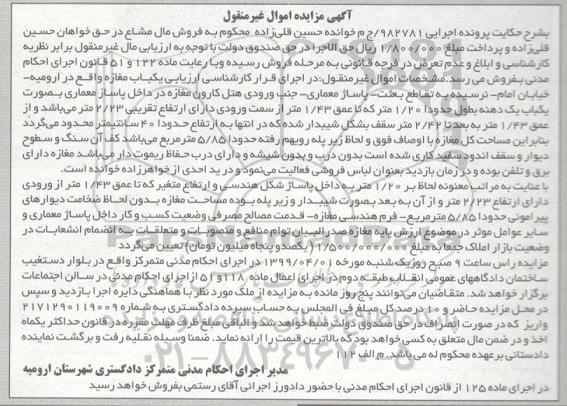 آگهی مزایده اموال غیرمنقول
بشرح حکایت پرونده اجرایی ۹۸۲۷۸۱/ج م خوانده حسین قلی‌زاده محکوم به فروش مال مشاع در حق خواهان حسین
قلی‌زاده و پرداخت مبلغ ۱/۸۰۰/۰۰۰ ریال حق الاجرا در حق صندوق دولت با توجه به ارزیابی مال غیرمنقول برابر نظریه
کارشناسی و ابلاغ و عدم تعرض در فرجه قانونی به مرحله فروش رسیده و با رعایت ماده ۱۲۲ و ۵۱ قانون اجرای احکام
مدنی بفروش می رسد. مشخصات اموال غیرمنقول: در اجرای قرار کارشناسی ارزیابی یکباب مغازه واقع در ارومیه-
خیابان امام- نرسیده به تقاطع بعثت- پاساژ معماری- جنب ورودی هتل کارون مغازه در داخل پاساژ معماری بصورت
یکباب یک دهنه بطول حدودا ۱/۲۰ متر که تا عمق ۱/۴۳ متر از سمت ورودی دارای ارتفاع تقریبی ۲/۲۳ متر می‌باشد و از
عمق ۱/۴۳ متر به بعد تا ۲/۴۲ متر سقف بشکل شیبدار شده که در انتها به ارتفاع حدودا ۴۰ سانتیمتر محدود می‌گردد
بنابراین مساحت کل مغازه با اوصاف فوق و لحاظ زیر پله رویهم رفته حدودا ۵/۸۵ متر مربع می باشد کف آن سنگ و سطوح
دیوار و سقف اندود سفید کاری شده است بدون درب و بدون شیشه و دارای درب حفاظ ریموت دار می‌باشد مغازه دارای
برق و تلفن بوده و در زمان بازدید بعنوان لباس فروشی فعالیت می‌نمود و در ید احدی از خواهر زاده خوانده است.
با عنایت به مراتب معنونه لحاظ بر ۱/۲۰ متر به داخل پاساژ شکل هندسی و ارتفاع متغیر که تا عمق ۱/۴۳ متر از ورودی
دارای ارتفاع ۲/۲۳ متر و از آن به بعد بصورت شیبدار و زیر پله بوده مساحت مغازه بدون لحاظ ضخامت دیوارهای
پیرامونی حدودا ۵/۸۵ متر مربع- فرم هندسی مغازه- قدمت مصالح مصرفی وضعیت کسب و کار داخل پاساژ معماری و
سایر عوامل موثر در موضوع ارزش پایه مغازه صدرالبیان توام منافع و منصوبات و متعلقات به انضمام انشعابات در
وضعیت بازار املاک جمعا به مبلغ ۱/۵۰۰/۰۰۰/۰۰۰ ریال (یکصد و پنجاه میلیون تومان) تعیین می‌گردد
مزایده راس ساعت ۹ صبح روز یک شنبه مورخه ۱۳۹۹/۰۴/۰۱ در اجرای احکام مدنی متمرکز واقع در بلوار دستغیب
ساختمان دادگاههای عمومی انقلاب طبقه دوم در اجرای اعمال ماده ۱۱۸ و ۵۱ از اجرای احکام مدنی در سالن اجتماعات
برگزار خواهد شد. متقاضیان می‌توانند پنج روز مانده به مزایده از ملک مورد نظر با هماهنگی دایره اجرا بازدید و سپس
در محل مزایده حاضر و ده درصد کل مبلغ فی المجلس به حساب سپرده دادگستری به شماره ۲۱۷۱۲۹۰۱۱۹۰۰۹
واریز که در صورت انصراف در حق صندوق دولت ضبط خواهد شد و الباقی مبلغ ظرف مهلت مقرره در قانون حداکثر یکماه
اخذ و در ضمن مال متعلق به کسی خواهد بود که بالاترین قیمت را ارائه نماید. ضمنا وسیله نقلیه رفت و برگشت نماینده
دادستانی بر عهده محکوم له می باشد. م الف ۱۱۲
مدیر اجرای احکام مدنی متمرکز دادگستری شهرستان ارومیه
در اجرای ماده ۱۲۵ از قانون اجرای احکام مدنی با حضور دادورز اجرائی آقای رستمی بفروش خواهد رسید
۰۲۱-۸۸۳۴۹۶۷۰-۵